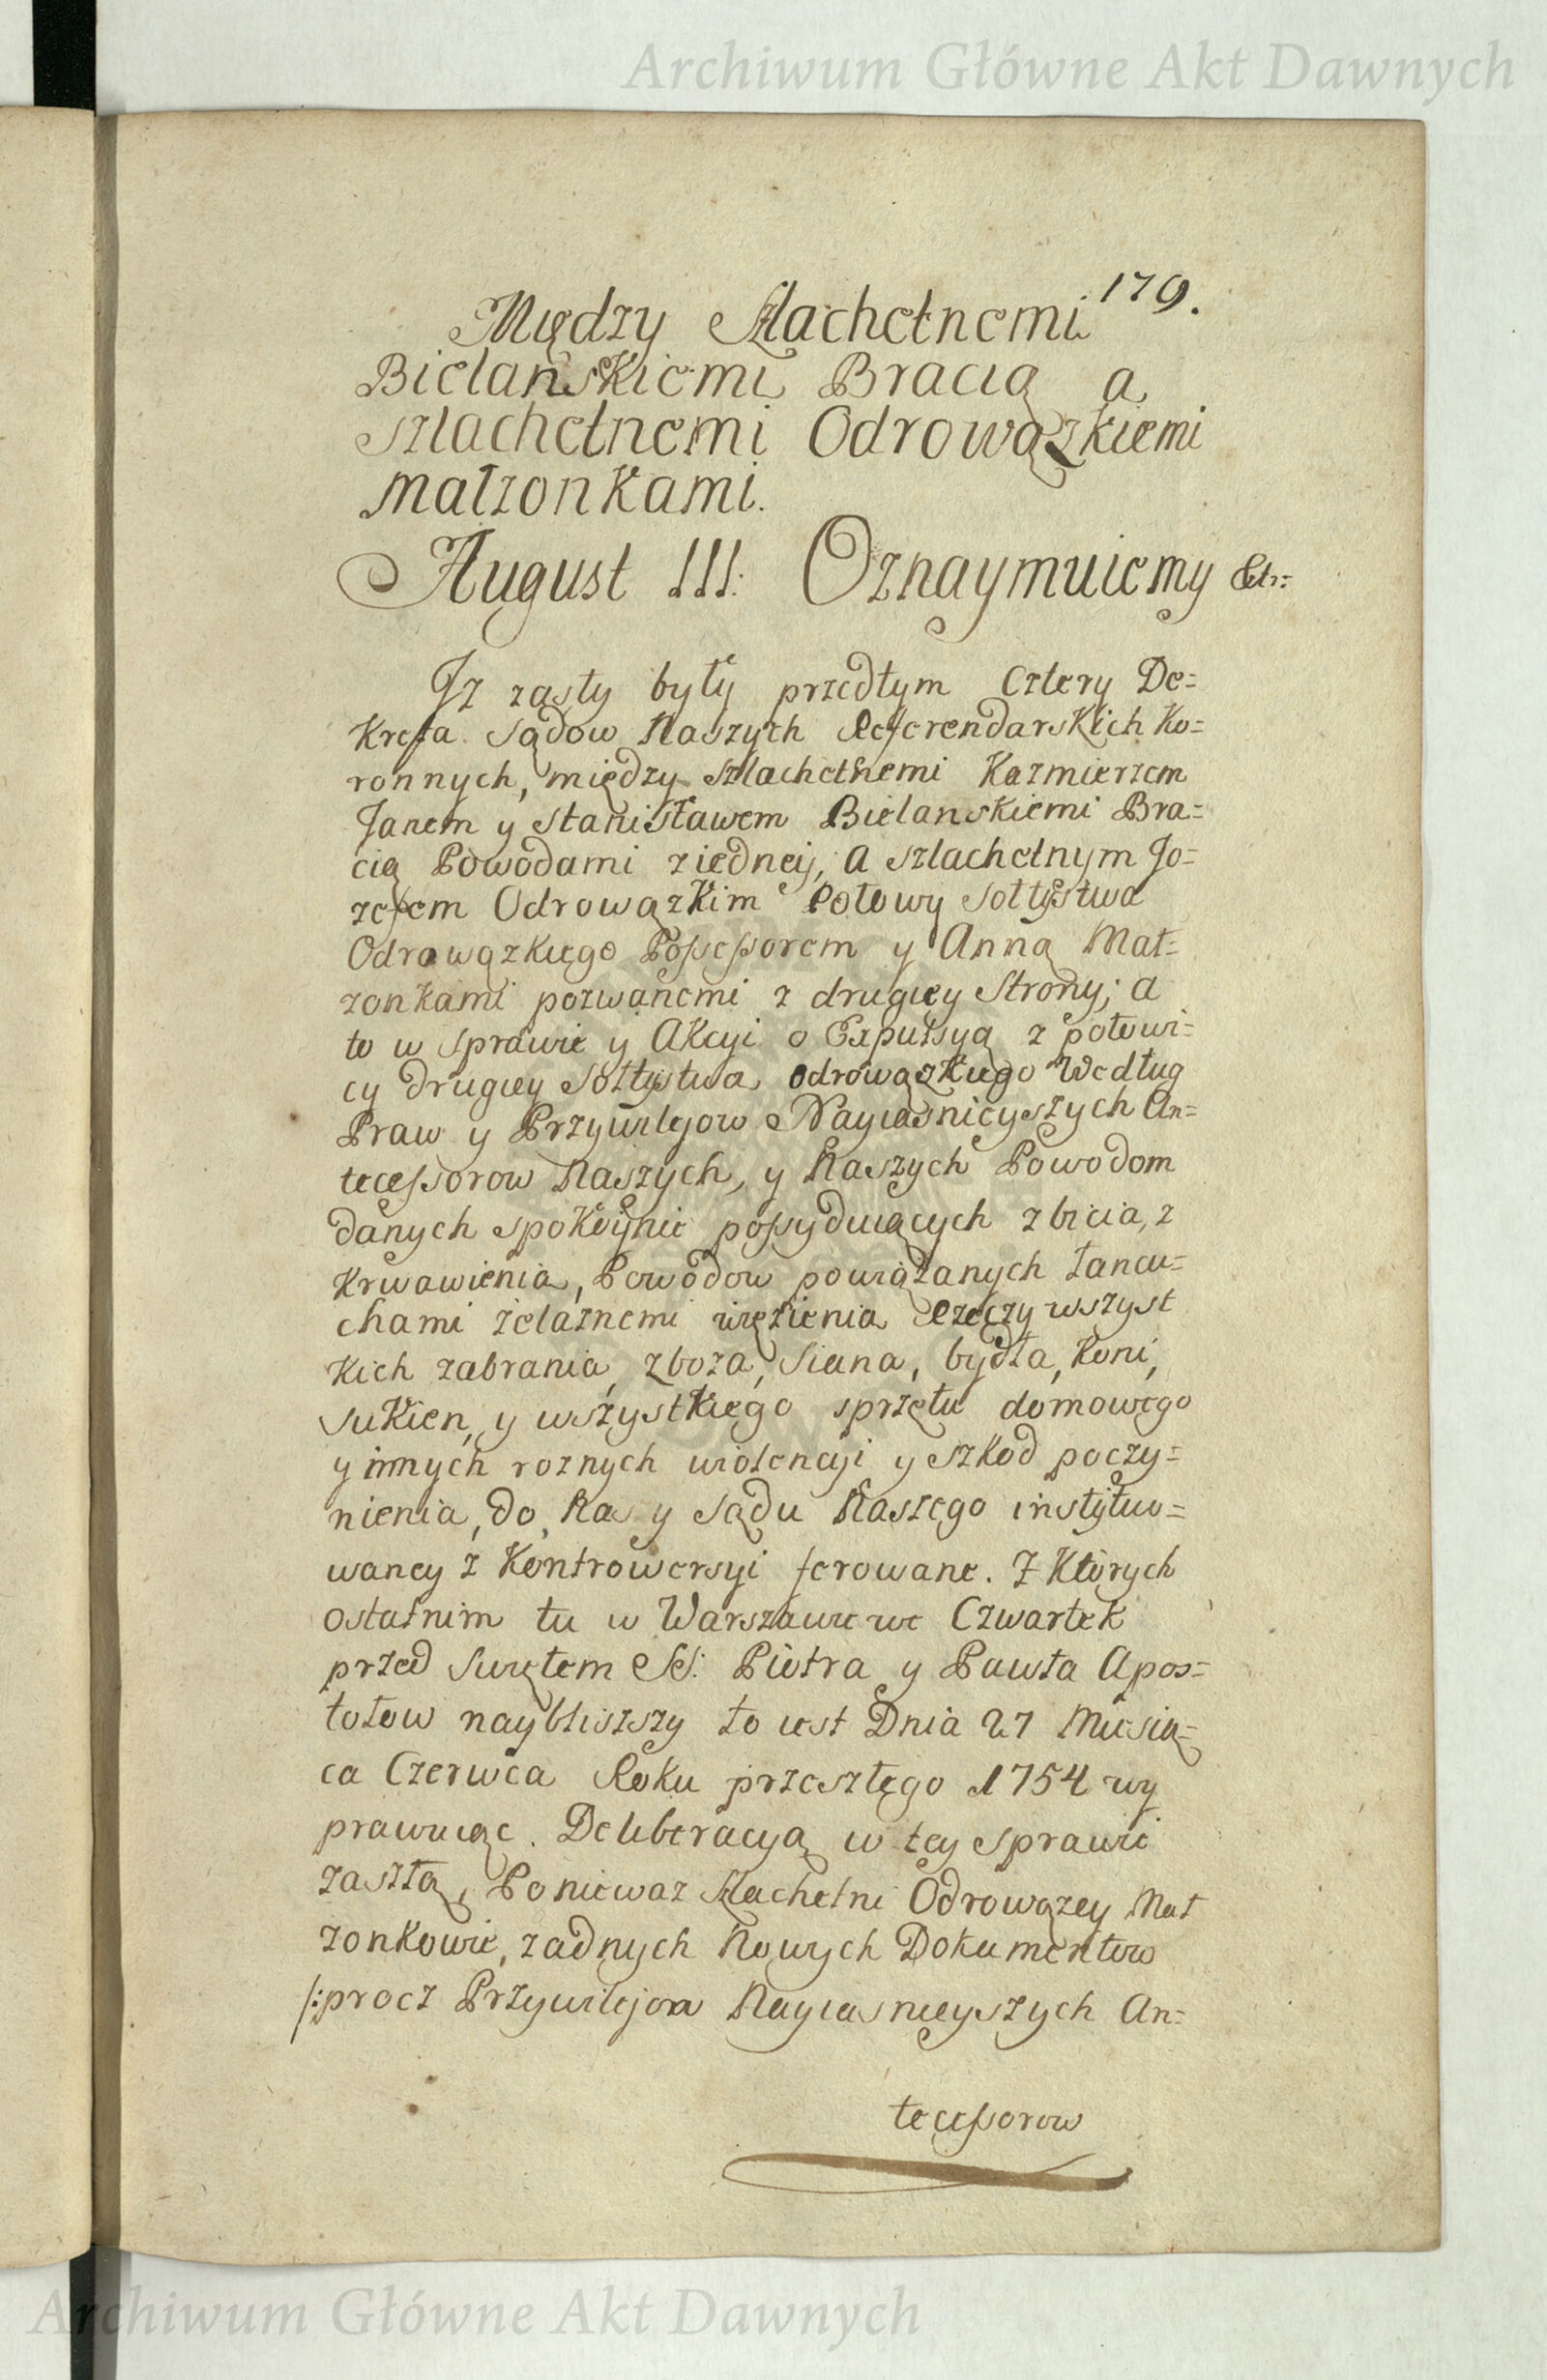 Archiwum Główne Akt Dawnych
179.
Między Szlachetnemi
Bielanskiemi Bracią a
Szlachetnemi Odrowązkiemi
małzonkami.
August III. Oznaymuiemy Etc:
Iz zaszły były przedtym cztery De=
kreta Sądow Naszych Referendarskich Ko=
ronnych, między Szlachetnemi Kazmierzem
Janem y Stanisławem Bielanskiemi Bra=
cią Powodami z iedney, a Szlachetnym Jo=
zefem Odrowązkim Połowy Sołtystwa
Odrowązkiego Possessorem y Anną Mał=
zonkami pozwanemi z drugiey Strony; a
to w sprawie y Akcyi o Expulsyą z połowi=
cy drugiey Sołtystwa Odrowązkiego Według
Praw y Przywilejow Nayiasnieyszych An=
tecessorow Naszych, y Naszych Powodom
danych spokoynie possyduiących zbicia, z
krwawienia, Powodow powiązanych łancu=
chami żelaznemi więzienia Rzeczy wszyst
kich zabrania, zboza, Siana, bydła, Koni,
Sukien, y wszystkiego sprzętu domowego
y innych roznych wiolencyi y szkod poczy=
nienia, do Nas y Sądu Naszego instytuo=
waney z Kontrowersyi ferowane. Z Ktorych
ostatnim tu w Warszawie we Czwartek
przed Swiętem SS. Piotra y Pawła Apos=
tołow naybliszszy to iest Dnia 27 Miesią=
ca Czerwca Roku przeszłego 1754 wy
prawuiąc. Deliberacyą w tey sprawie
zaszłą, Poniewaz Szlachetni Odrowązey Mał
zonkowie, zadnych Nowych Dokumentow
/:procz Przywilejow Nayiasnieyszych An=
tecessorow
Archiwum Główne Akt Dawnych